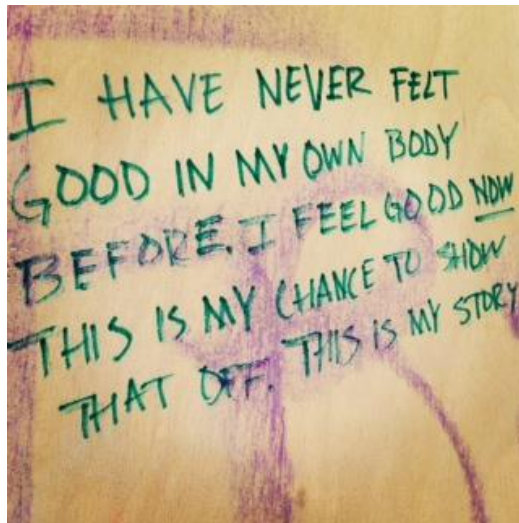 I HAVE NEVER FELT
GOOD IN MY OWN BODY
BEFORE. I FEEL GOOD NOW
THIS IS MY CHANCE TO SHOW
THAT OFF. THIS IS MY STORY